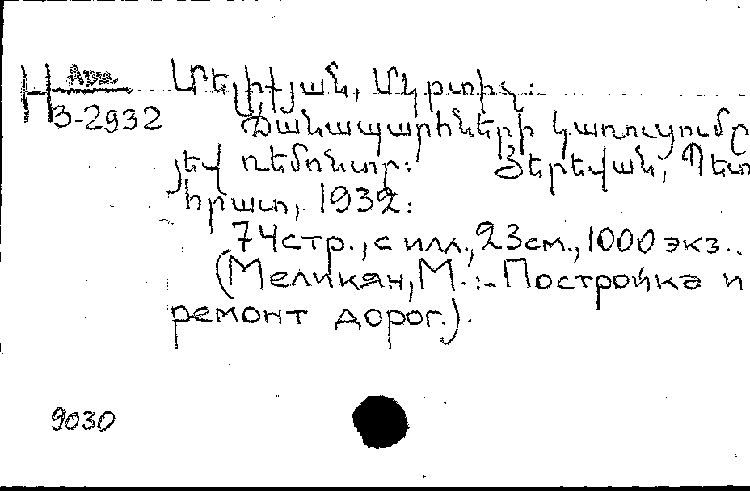 Арм.
Н
3-2932
Մելիքյան, Մկրտիչ:
Ճանապարհների կառուցումը
յեվ ռեմոնտը: Յերեվան, Պետ
հրատ, 1932:
74стр., с илл., 23см., 1000 экз..
(Меликян, М. :-Постройка и
ремонт дорог.).
9030